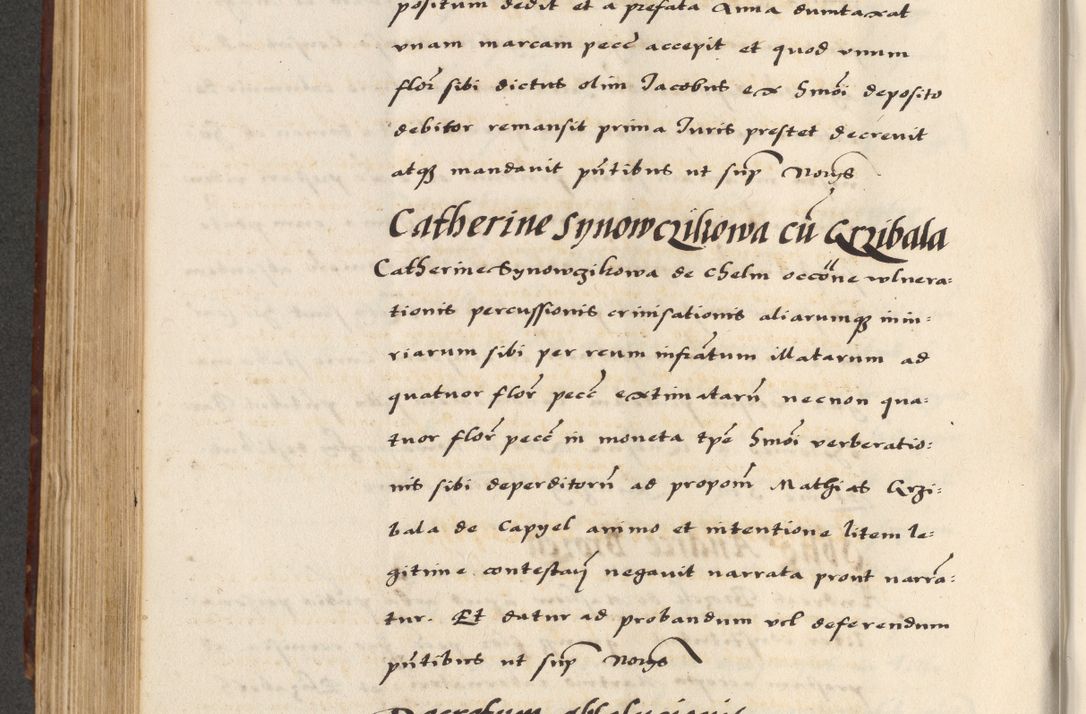 positum dedit et a prefata Anna dumtaxat
vnam marcam pecc̃ accepit et quod vnum
flor̃ sibi dictus olim Jacobus ex Hmõi deposito
debitor remansit prima Juris prestet decrevit
atqꝫ mandavit pñtibus ut sup̃ Norys
Catherine Synowczikowa cũ Grzibala
Catherine Synowczikowa de Chelm occõne wlnera:
tionis percussionis crinisationis aliarumqꝫ iniu:
riarum sibi per reum infrãtum illatarum ad
quatuor flor̃ pecc̃ extimatarũ necnon qua:
tuor flor̃ pecc̃ in moneta tpẽ Hmõi verberatio:
nis sibi deperditorũ ad propom̃ Mathias Grzi:
bala de Capyel animo et intentione litem le:
gitime contestarj negavit narrata prout narrã:
tur. Et datur ad probandum vel deferendum
pñtibus ut sup̃ Norys
Decretum absolucionis